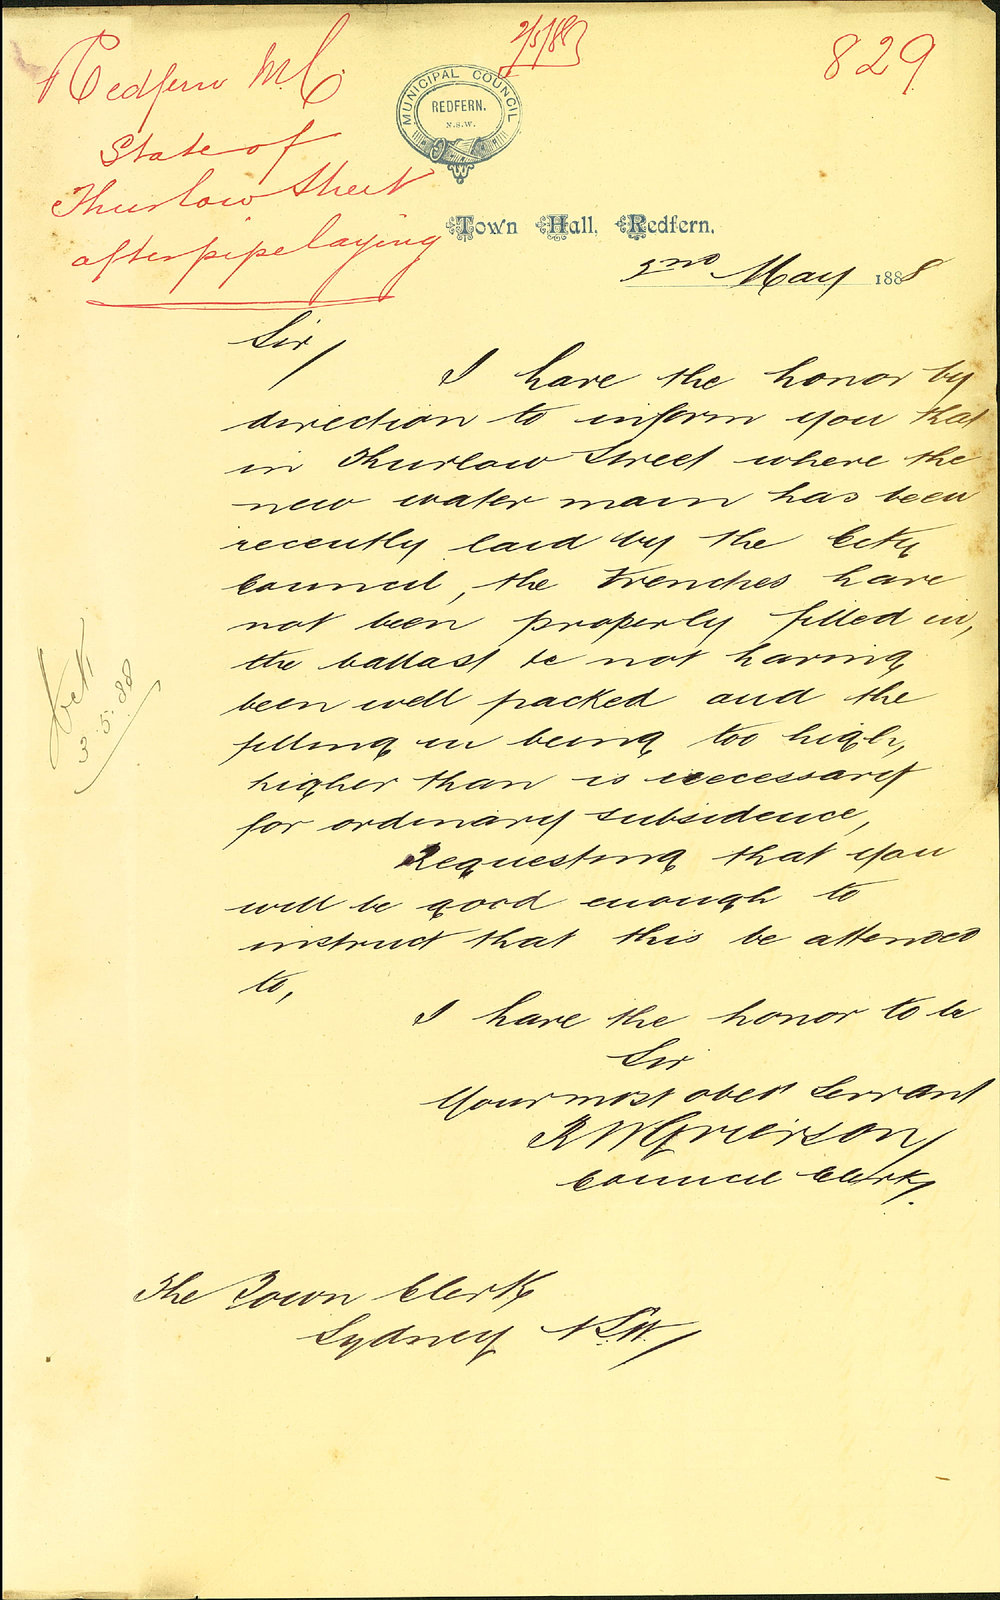 829
2/5/88
Redfern M.C.
State of
Thurlow Street
after pipe laying
MUNICIPAL COUNCIL
REDFERN.
N.S.W.
Town Hall, Redfern.
2nd May 1888
Sir,
I have the honor by
direction to inform you that
in Thurlow Street where the
new water main has been
recently laid by the City
Council, the trenches have
not been properly filled in,
the ballast &c not having
been well packed and the
filling in being too high,
higher than is necessary
for ordinary subsidence,
Requesting that you
will be good enough to
instruct that this be attended
to,
I have the honor to be
Sir
Your most obedt Servant
R W Grierson
Council Clerk.
3.5.88
The Town Clerk
Sydney N.S.W.